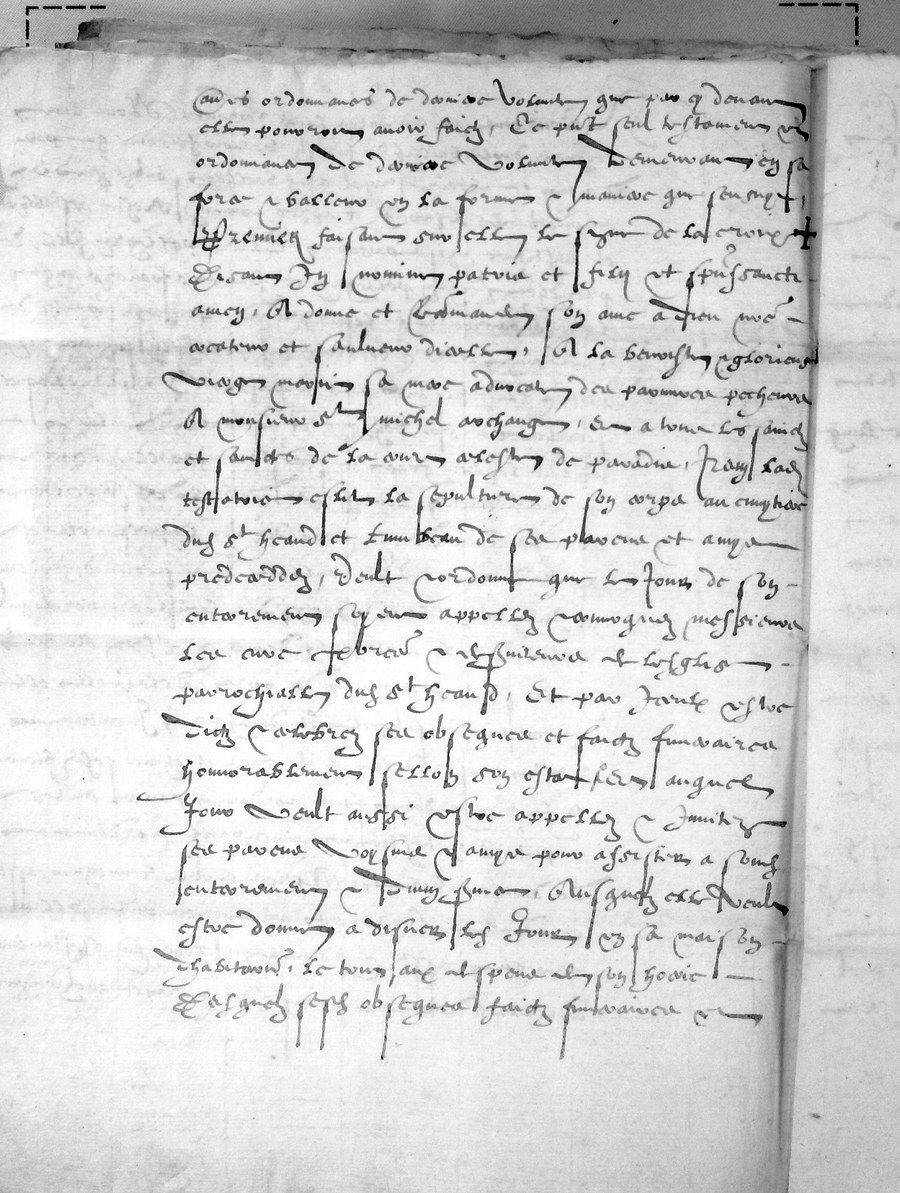 au[tr]es ordonnances de derniere volunte que par cy devant
elle pourroit avoir faict, Ce put seul testament et
ordonnance de derniere volunte demeurant en sa
force et valleur en la forme et maniere que sensuyt,
Premier faisant sur elle le signe de la croix +
Disant In nomine patris et filii et spus sancti
amen, A donne et Recomande son ame a Dieu nre
createur et saulveur dicelle, A la benoiste et glorieuse
vierge marie sa mere advocate des pauvres pecheurs
A monsieur st michel archange, et a tous les sainctz
et sainctes de la court celeste de paradis, Item lad
testatrice eslit la sepulture de son corps au cimitiere
dud st heand et tumbeau de ses parens et amys
predecedez, Veult et ordonne que le Jour de son
enterrement soyent appellez et convoquez messieurs
les cure prbres et de leglise
parrochialle dud st heand, Et par Iceulx estre
dictz et celebrez ses obseques et faictz funeraires
honnorablement sellon son estat, Et auquel
Jour veult aussi estre appellez et Invitez
ses parens voysins et amys pour assister a sond
enterrement et divin service, Ausquelz elle veult
estre donne a disner led Jour en sa maison
dhabitaon, le tout aux despens de son heoir
Desquelz sesd obseques faictz funeraires et